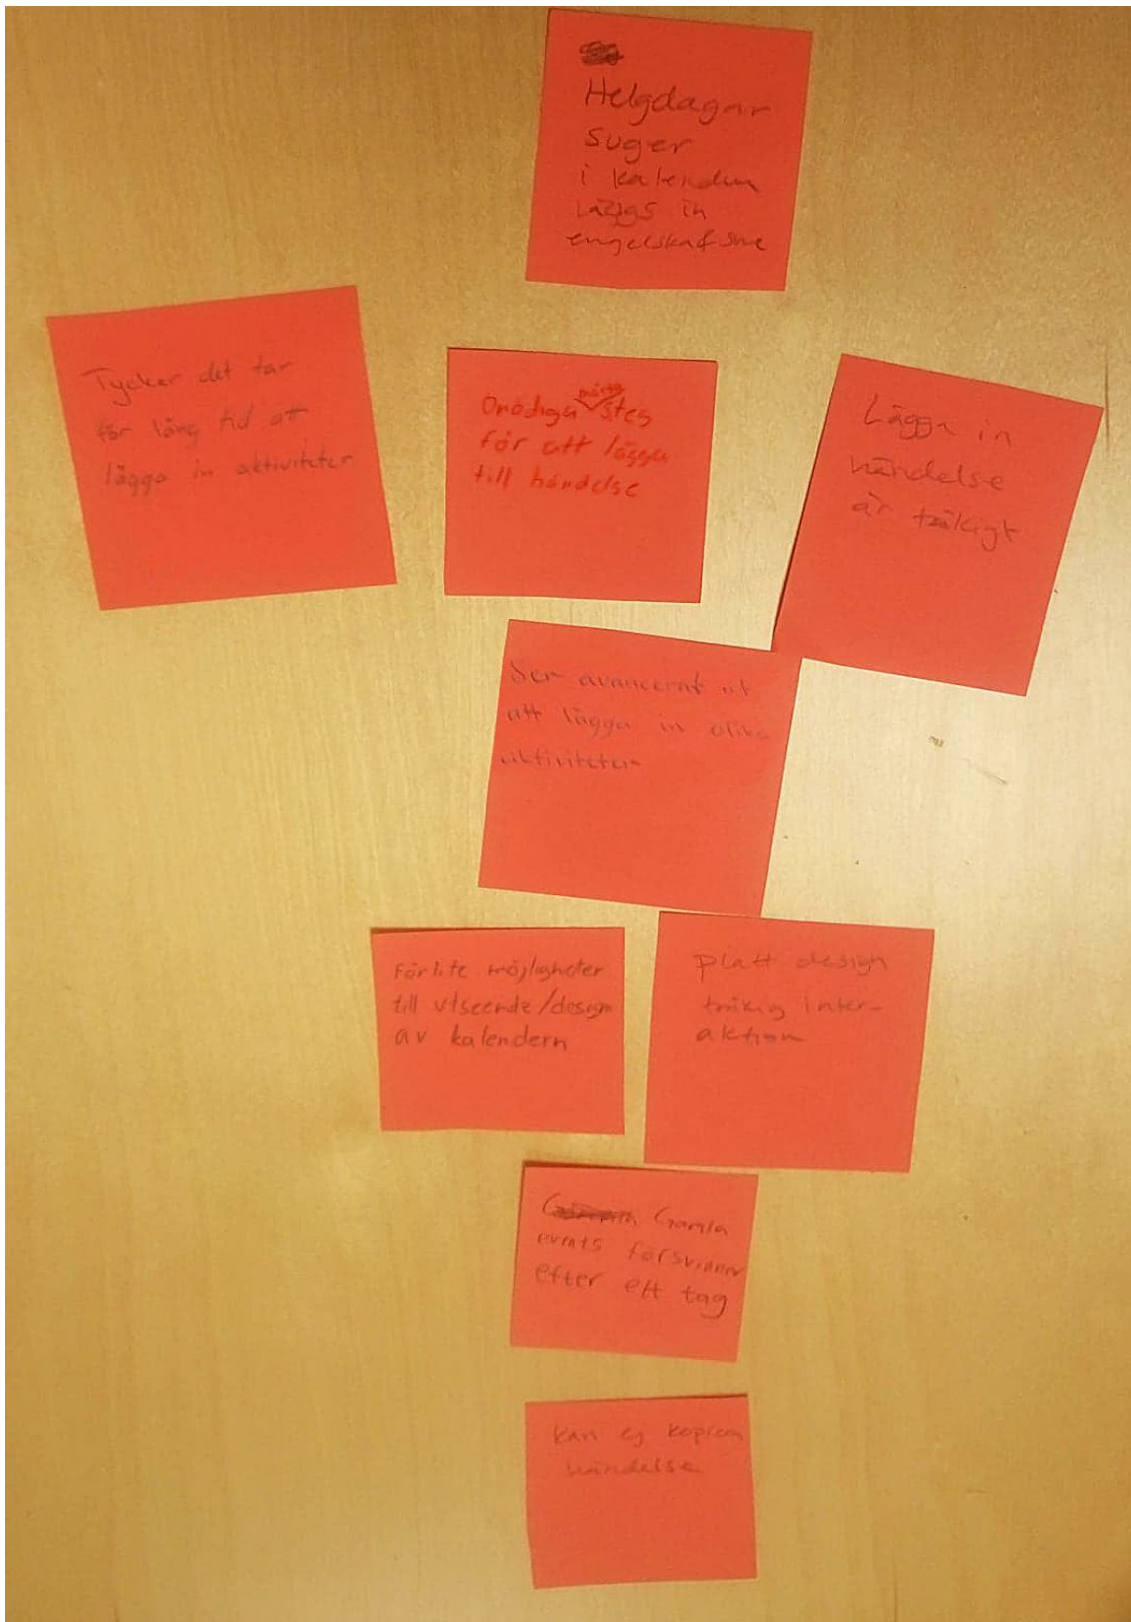 Helgdagar
suger
i kalendern
läggs in
Tycker det tar
för lång tid att
lägga in aktiviteter
Onödiga många steg
för att lägga
till händelse
Lägga in
händelse
är tråkigt
Ser avancerat ut
att lägga in olika
aktiviteter
För lite möjligheter
till utseende/design
av kalendern
Platt design
tråkig inter-
aktion
Gamla
events försvinner
efter ett tag
Kan ej kopiera
händelse